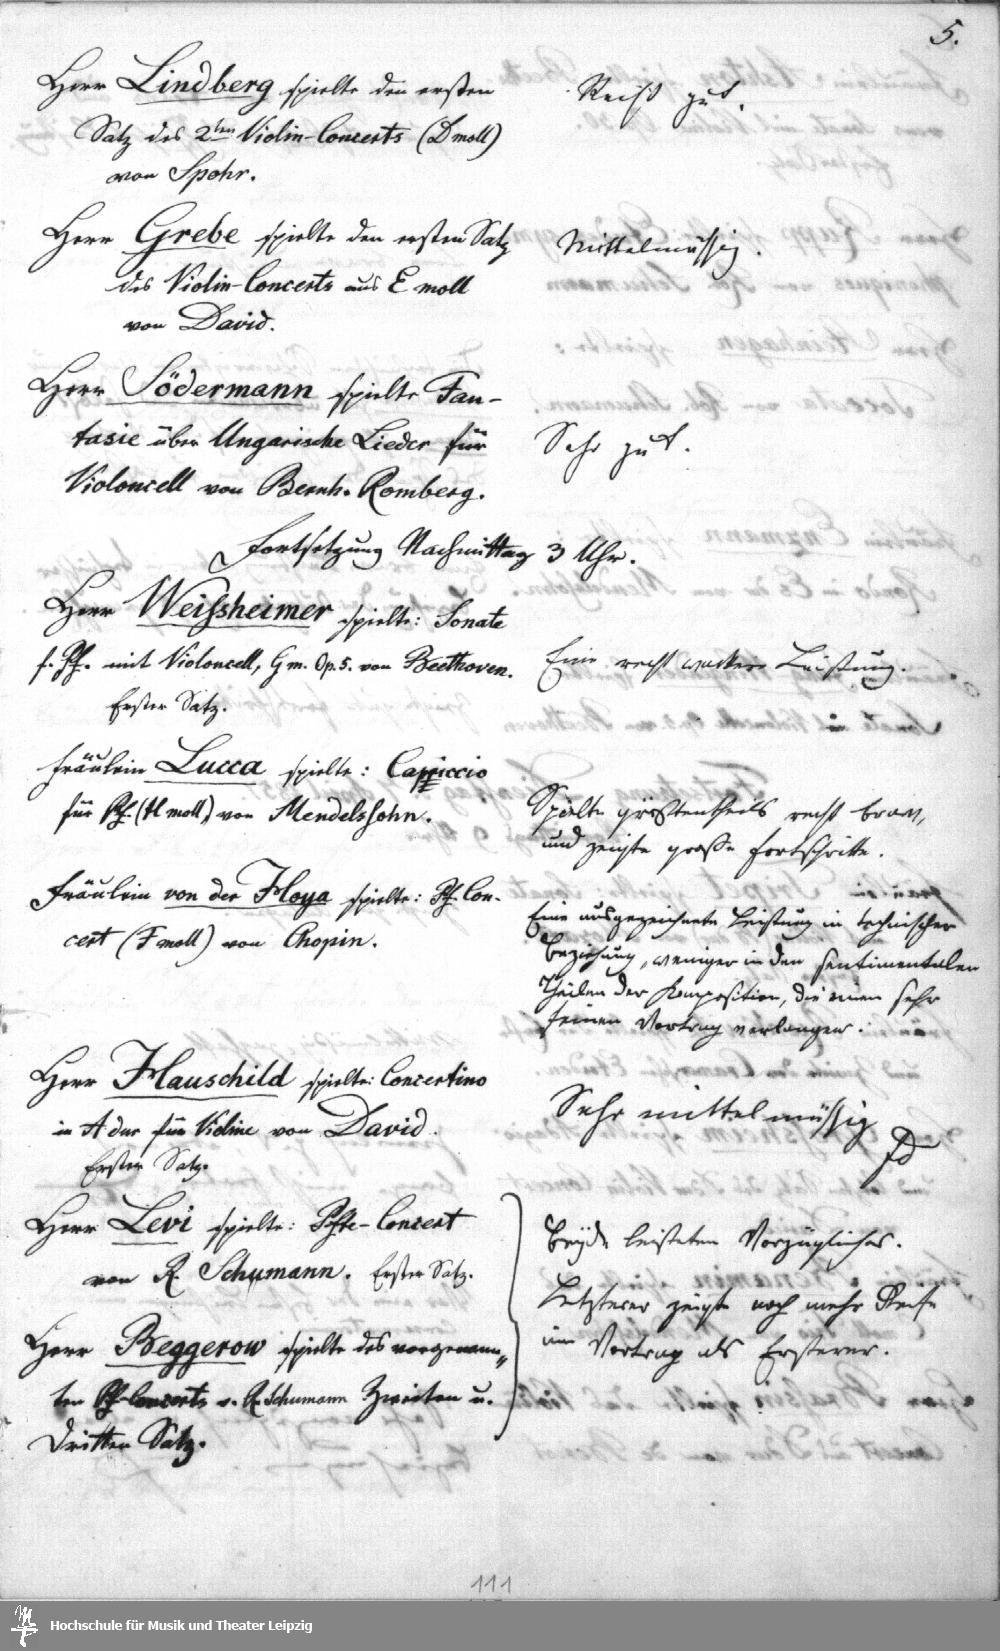 5.
Herr Lindberg spielte den ersten
Satz des 2ten Violin-Concerts (D moll)
von Spohr.
Recht gut.
Herr Grebe spielte den ersten Satz
des Violin-Concerts aus E moll
von David.
Mittelmässig.
Herr Södermann spielte Fan-
tasie über Ungarische Lieder für
Violoncell von Bernh. Romberg.
Sehr gut.
Fortsetzung Nachmittag 3 Uhr.
Herr Weissheimer spielte: Sonate
f. Pf. mit Violoncell, G m. Op. 5. von Beethoven.
Erster Satz.
Eine recht wackere Leistung.
Fräulein Lucca spielte: Capriccio
für Pf. (H moll) von Mendelssohn.
Spielte grösstentheils recht brav,
und zeigte grosse Fortschritte.
Fräulein von der Hoya spielte: Pf. Con-
cert (F moll) von Chopin.
Eine ausgezeichnete Leistung in technischer
Beziehung, weniger in den sentimentalen
Theilen der Komposition, die einen sehr
feinen Vortrag verlangen.
Herr Hauschild spielte: Concertino
in A dur für Violine von David.
Erster Satz.
Sehr mittelmässig
Herr Levi spielte: Pfte-Concert
von R. Schumann. Erster Satz.
Herr Beggerow spielte des vorgenann-
ten Pf. Concerts v. R. Schumann Zweiten u.
Dritten Satz.
Beyde leisteten Vorzügliches.
Letzterer zeigte noch mehr Reife
im Vortrag als Ersterer.
111
Hochschule für Musik und Theater Leipzig